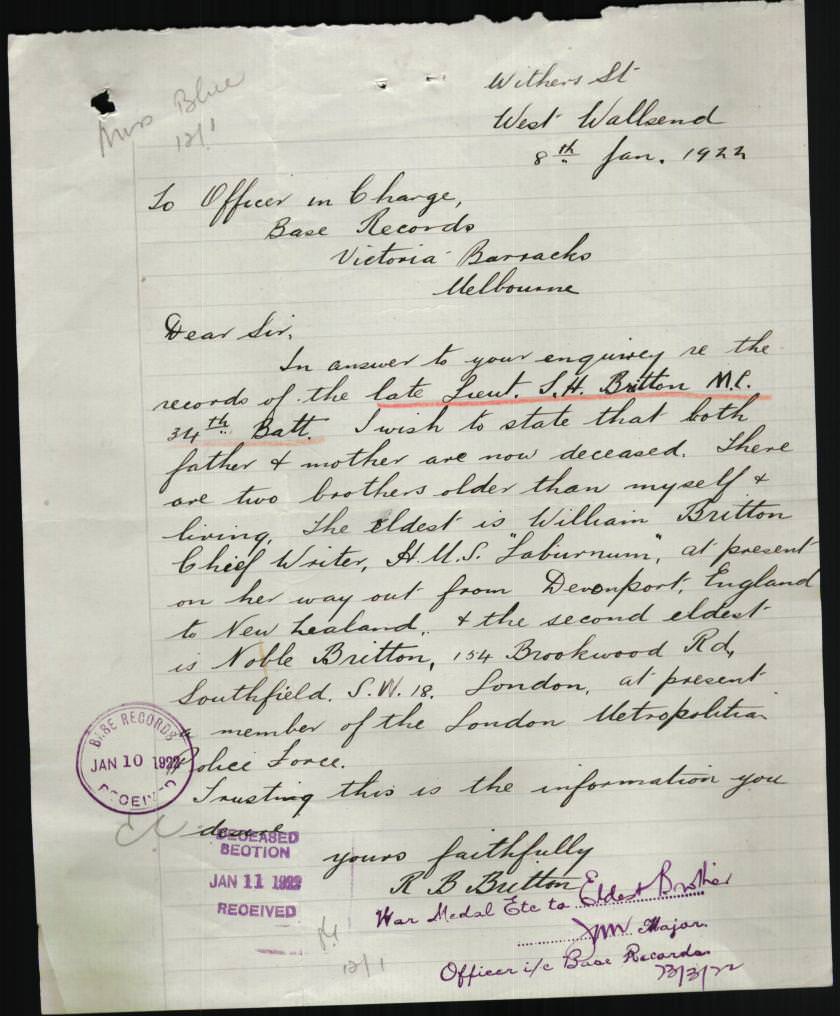 Miss Blue
12/1
Withers St
West Wallsend
8th Jan. 1922
To Officer in Charge,
Base Records
Victoria Barracks
Melbourne
Dear Sir,
In answer to your enquirey re the
records of the late Lieut. S.H. Britton M.C.
34th Batt. I wish to state that both
father & mother are now deceased. There
are two brothers older than myself &
living. The eldest is William Britton
Chief Writer, H.M.S. "Laburnum", at present
on her way out from Devonport, England
to New Zealand, & the second eldest
is Noble Britton, 154 Brookwood Rd,
Southfield. S.W. 18. London, at present
a member of the London Metropolitian
Police Force.
Trusting this is the information you
desire
yours faithfully
R B Britton
BASE RECORDS
JAN 10 1922
RECEIVED
DECEASED
SECTION
JAN 11 1922
RECEIVED
War Medal Etc to Eldest Brother
Major.
Officer i/c Base Records
23/3/22
12/1